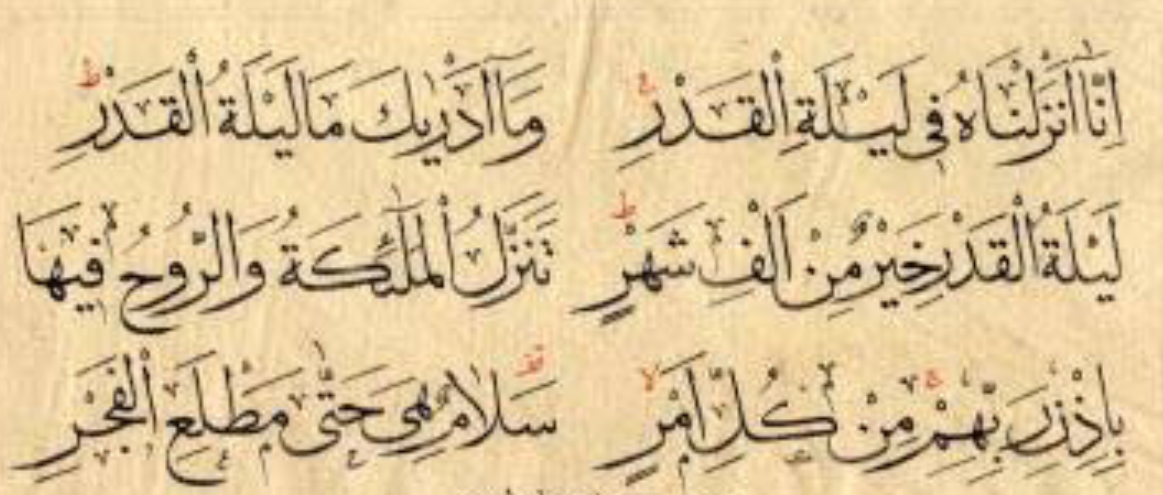 اِنَّٓا اَنْزَلْنَاهُ فِى لَيْلَةِ الْقَدْرِ ج وَمَٓا اَدْرٰيكَ مَا لَيْلَةُ الْقَدْرِ ط
لَيْلَةُ الْقَدْرِ خَيْرٌ مِنْ اَلْفِ شَهْرٍ ط تَنَزَّلُ الْمَلٰٓئِكَةُ وَالرُّوحُ فِيهَا
بِاِذْنِ رَبِّهِمْ ج مِنْ كُلِّ اَمْرٍ لا سَلَامٌ قف هِىَ حَتّٰى مَطْلَعِ الْفَجْرِ